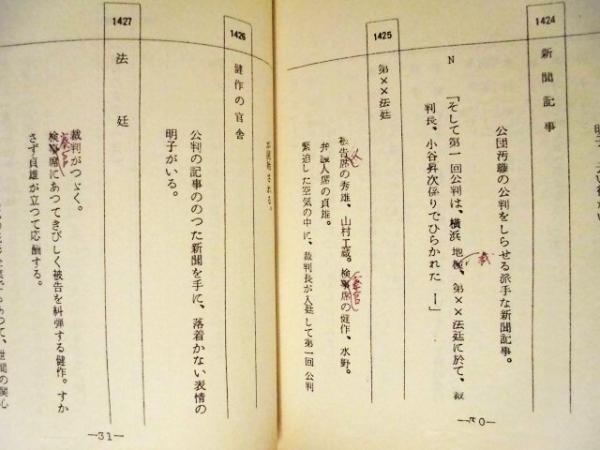 1424
新聞記事
公団汚職の公判をしらせる派手な新聞記事。
N
「そして第一回公判は、横浜地検、第××法廷に於て、裁
判長、小谷昇次係りでひらかれた ー」
1425
第××法廷
被告席の秀雄、山村工蔵。検事席の健作、水野。
弁護人席の貞雄。
緊迫した空気の中に、裁判長が入廷して第一回公判
—30—
される。
1426
健作の官舎
公判の記事ののつた新聞を手に、落着かない表情の
明子がいる。
1427
法廷
裁判がつゞく。
検事席にあつてきびしく被告を糾弾する健作。すか
さず貞雄が立つて応酬する。
世間の関心
—31—